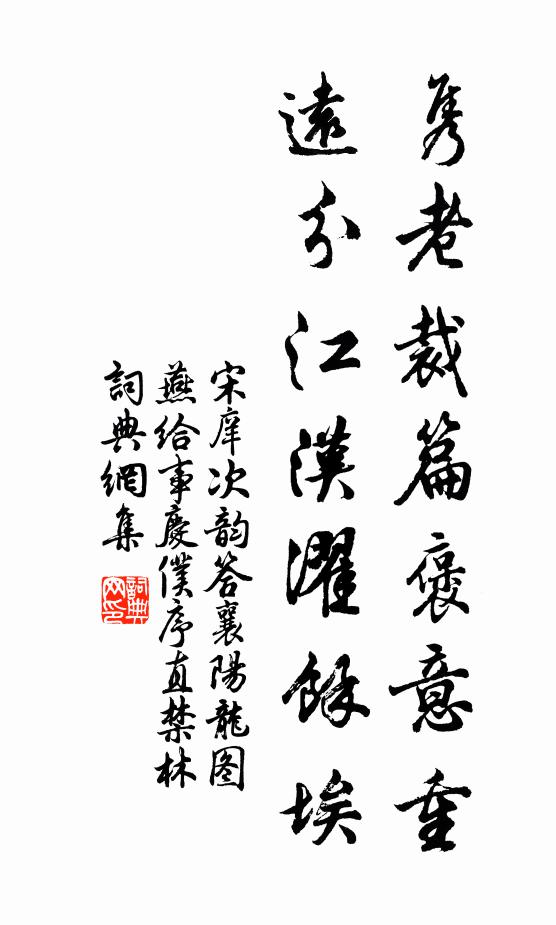 隽老裁篇褒意重
遠分江漢濯餘埃
宋庠次韵答襄陽龍图
燕给事慶僕序直禁林
詞典網集
詞典
网印